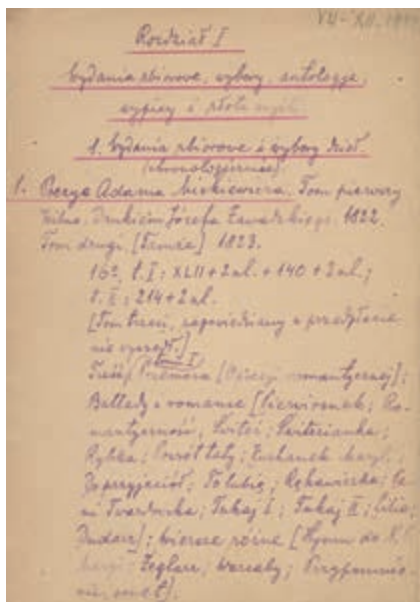 VII-XII.
Rozdział I
Wydania zbiorowe, wybory, antologje,
wypisy i złote myśli
1. Wydania zbiorowe i wybory dzieł.
(chronologicznie)
1. Poezye Adama Mickiewicza. Tom pierwszy
Wilno. Drukiem Józefa Zawadzkiego. 1822.
Tom drugi. [Tamże] 1823.
16º, t. I: XLII + 2 nl. + 140 + 2 nl.;
t. II: 214 + 2 nl.
[Tom trzeci, zapowiedziany w przedpłacie
nie wyszedł.]
Treść tomu I: Przemowa [O poezji romantycznej];
Ballady i romanse [Pierwiosnek; Ro-
mantyczność; Świteź; Świtezianka;
Rybka; Powrót taty; Kurhanek Maryli;
Do przyjaciół; To lubię; Rękawiczka; Pa-
ni Twardowska; Tukaj I; Tukaj II; Lilie;
Dudarz]; Wiersze różne [Hymn do N.P.
Żeglarz; Warcaby; Przypomnie-
nie, sonet].